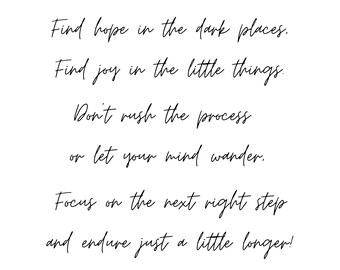 Find hope in the dark places.
Find joy in the little things.
Don't rush the process
or let your mind wander.
Focus on the next right step
and endure just a little longer!